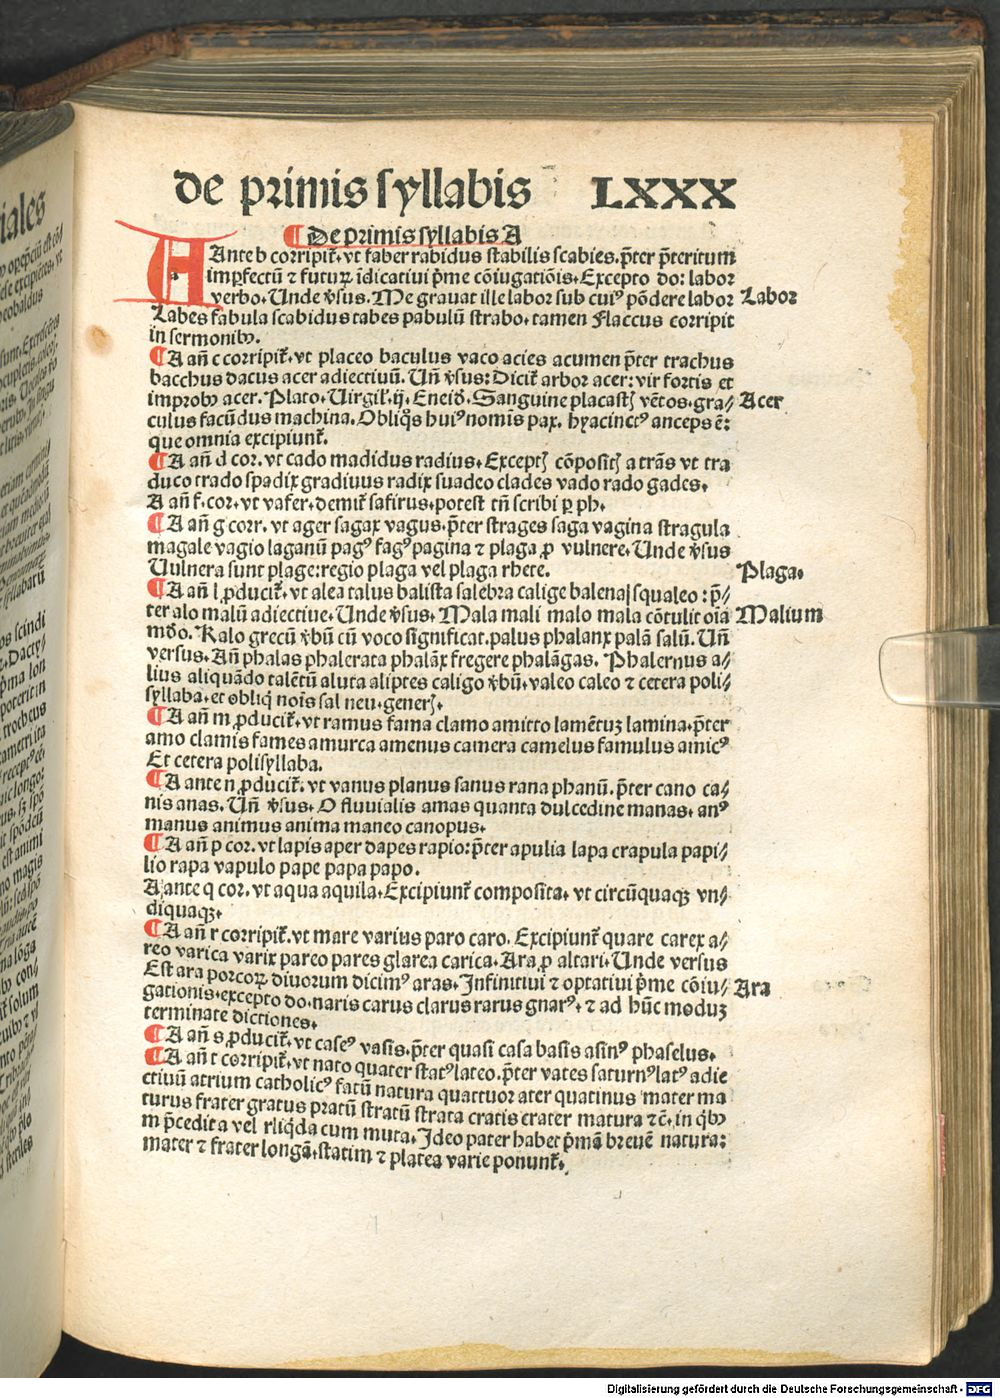 de primis syllabis LXXX
¶ De primis syllabis A
A Ante b corripit᷑. vt faber rabidus stabilis scabies. p̄ter p̄teritum
imꝑfectū ⁊ futuꝝ īdicatiui p̄me cōiugatiōis. Excepto do: labor
verbo. Unde v̄sus. Me grauat ille labor sub cuiꝰ pōdere labor Labor
Labes fabula scabidus tabes pabulū strabo. tamen Flaccus corripit
in sermonibꝰ.
¶ A an̄ c corripit᷑. vt placeo baculus vaco acies acumen p̄ter trachus
bacchus dacus acer adiectiuū. Un̄ v̄sus: Dicit᷑ arbor acer: vir fortis et
improbꝰ acer. Plato. Uirgil. ij. Eneid. Sanguine placastꝭ vētos. gra⸗ Acer
culus facūdus machina. Obliq̄s huiꝰ nomīs pax. hyacinctꝰ anceps ē:
que omnia excipiunt᷑.
¶ A an̄ d cor. vt cado madidus radius. Exceptꝭ cōpositꝭ a trās vt tra
duco trado spadix gradiuus radix suadeo clades vado rado gades.
A an̄ f. cor. vt vafer. demit᷑ safirus. potest tn̄ scribi ꝑ ph.
¶ A an̄ g corr. vt ager sagax vagus. p̄ter strages saga vagina stragula
magale vagio laganū pagꝰ fagꝰ pagina ⁊ plaga ꝓ vulnere. Unde v̄sus
Uulnera sunt plage: regio plaga vel plaga rhete. Plaga.
¶ A an̄ l ꝓducit᷑. vt alea talus balista salebra calige balenaꝭ squaleo: p̄⸗
ter alo malū adiectiue. Unde v̄sus. Mala mali malo mala cōtulit oīa Malium
mdo. Kalo grecū v̄bū cū voco significat. palus phalanx palā salū. Un̄
versus. An̄ phalas phalerata phalāx fregere phalāgas. Phalernus a⸗
lius aliquādo talētū aluta aliptes caligo v̄bū. valeo caleo ⁊ cetera poli⸗
syllaba. et obliqꝰ nois sal neu. generꝭ.
¶ A an̄ m ꝓducit᷑. vt ramus fama clamo amitto lamētuꝫ lamina. p̄ter
amo clamis fames amurca amenus camera camelus famulus amicꝰ
Et cetera polisyllaba.
¶ A ante n ꝓducit᷑. vt vanus planus sanus rana phanū. p̄ter cano ca⸗
nis anas. Un̄ v̄sus. O fluuialis amas quanta dulcedine manas. anꝰ
manus animus anima maneo canopus.
¶ A an̄ p cor. vt lapis aper dapes rapio: p̄ter apulia lapa crapula papi⸗
lio rapa vapulo pape papa papo.
A ante q cor. vt aqua aquila. Excipiunt᷑ composita. vt circūquaqꝫ vn⸗
diquaqꝫ.
¶ A an̄ r corripit᷑. vt mare varius paro caro. Excipiunt᷑ quare carex a⸗
reo varica varix pareo pares glarea carica. Ara ꝓ altari. Unde versus
Est ara porcoꝝ diuorum dicimꝰ aras. Infinitiui ⁊ optatiui p̄me cōiu⸗ Ara
gationis. excepto do. naris carus clarus rarus gnarꝰ. ⁊ ad hūc moduꝫ
terminate dictiones.
¶ A an̄ s ꝓducit᷑. vt caseꝰ vasis. p̄ter quasi casa basis asinꝰ phaselus.
¶ A an̄ t corripit᷑. vt nato quater statꝰ lateo. p̄ter vates saturnꝰ latꝰ adie
ctiuū atrium catholicꝰ fatū natura quattuor ater quatinus mater ma
turus frater gratus pratū stratū strata cratis crater matura ⁊c̄. in q̄bꝰ
m p̄cedit a vel rliq̄da cum muta. Ideo pater habet p̄mā breuē natura:
mater ⁊ frater longā. statim ⁊ platea varie ponunt᷑.
Digitalisierung gefördert durch die Deutsche Forschungsgemeinschaft - DFG